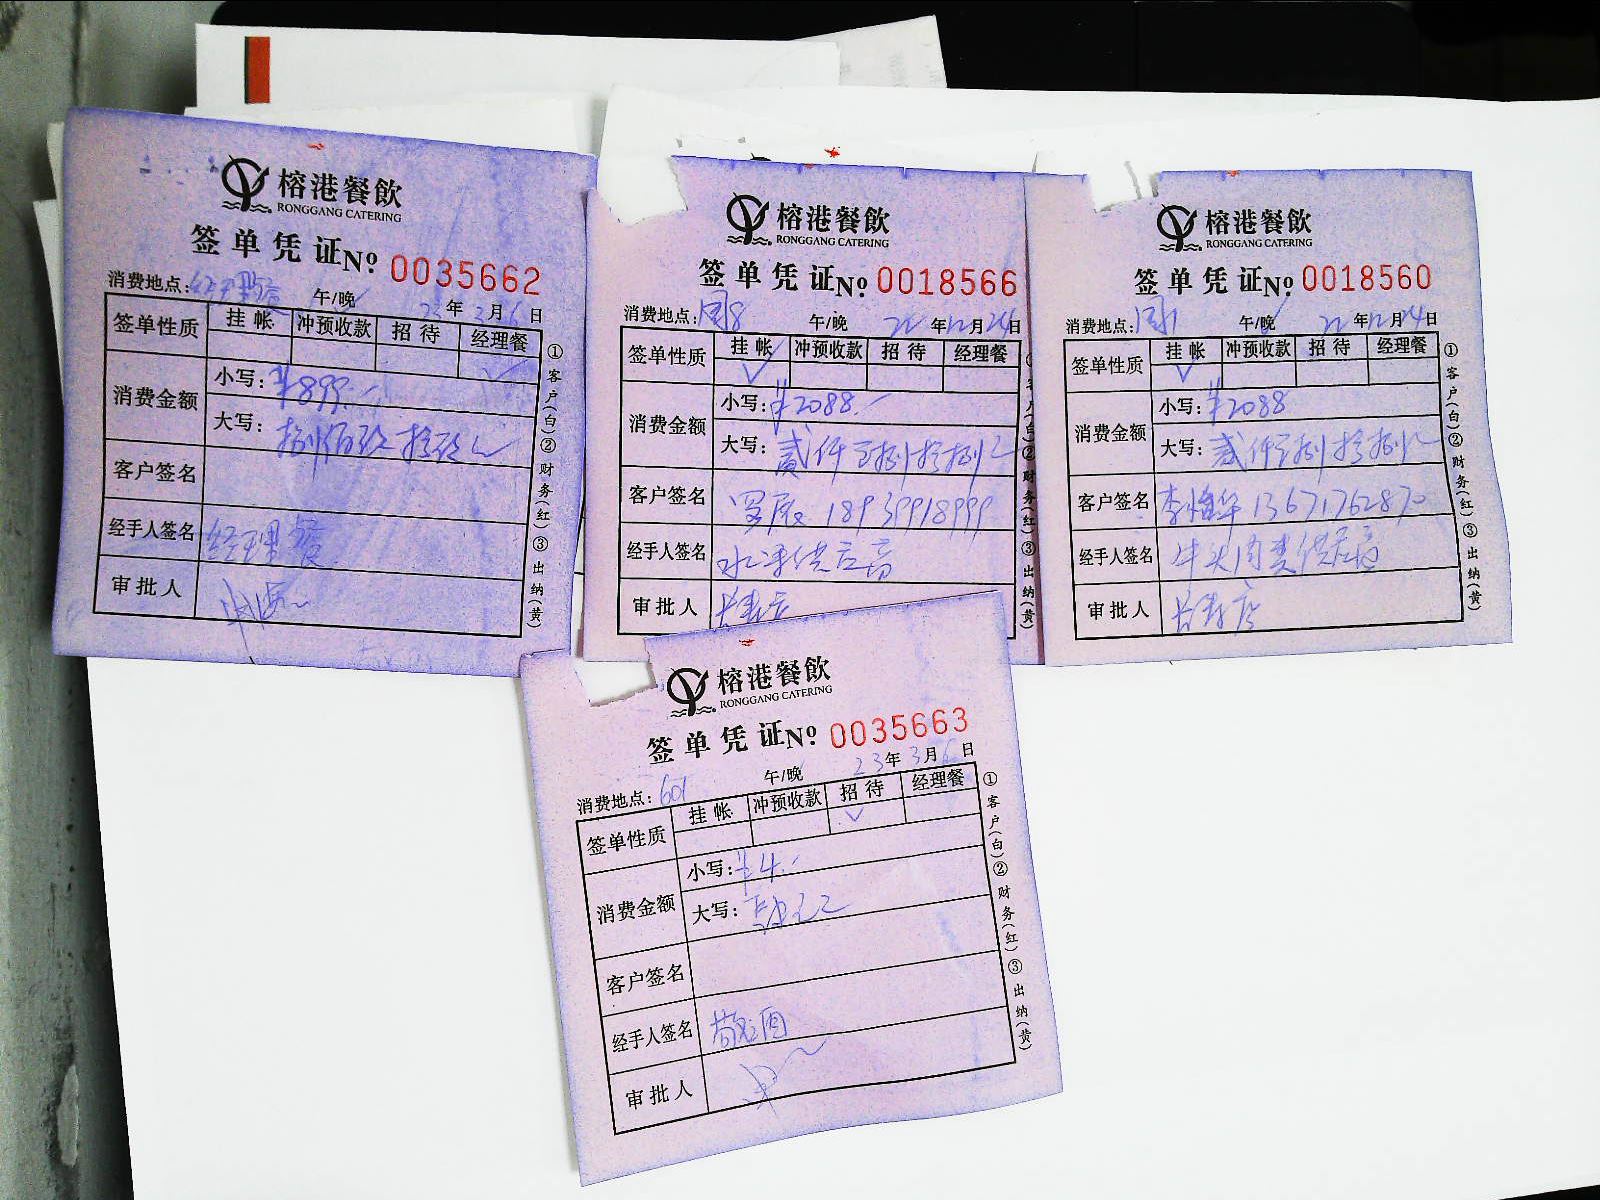 榕港餐飲
RONGGANG CATERING
签单凭证No. 0035662
消费地点: 经理餐 午/晚 23年3月6日
签单性质 挂帐 冲预收款 招待 经理餐
✓
消费金额 小写: ¥899.-
大写: 捌佰玖拾玖元
客户签名
经手人签名 经理餐
审批人
①客户(白)②财务(红)③出纳(黄)
榕港餐飲
RONGGANG CATERING
签单凭证No. 0018566
消费地点: 周8 午/晚 22年12月24日
签单性质 挂帐 冲预收款 招待 经理餐
✓
消费金额 小写: ¥2088.-
大写: 贰仟零捌拾捌元
客户签名 18939918999
经手人签名 水产供应商
审批人
客户(白)②财务(红)③出纳(黄)
榕港餐飲
RONGGANG CATERING
签单凭证No. 0018560
消费地点: 午/晚 22年12月24日
签单性质 挂帐 冲预收款 招待 经理餐
✓
消费金额 小写: ¥2088
大写: 贰仟零捌拾捌元
客户签名 13671762870
经手人签名 牛头肉类供应商
审批人
①客户(白)②财务(红)③出纳(黄)
榕港餐飲
RONGGANG CATERING
签单凭证No. 0035663
消费地点: 601 午/晚 23年3月6日
签单性质 挂帐 冲预收款 招待 经理餐
✓
消费金额 小写: ¥4.-
大写: 肆元
客户签名
经手人签名 敬酒
审批人
①客户(白)②财务(红)③出纳(黄)